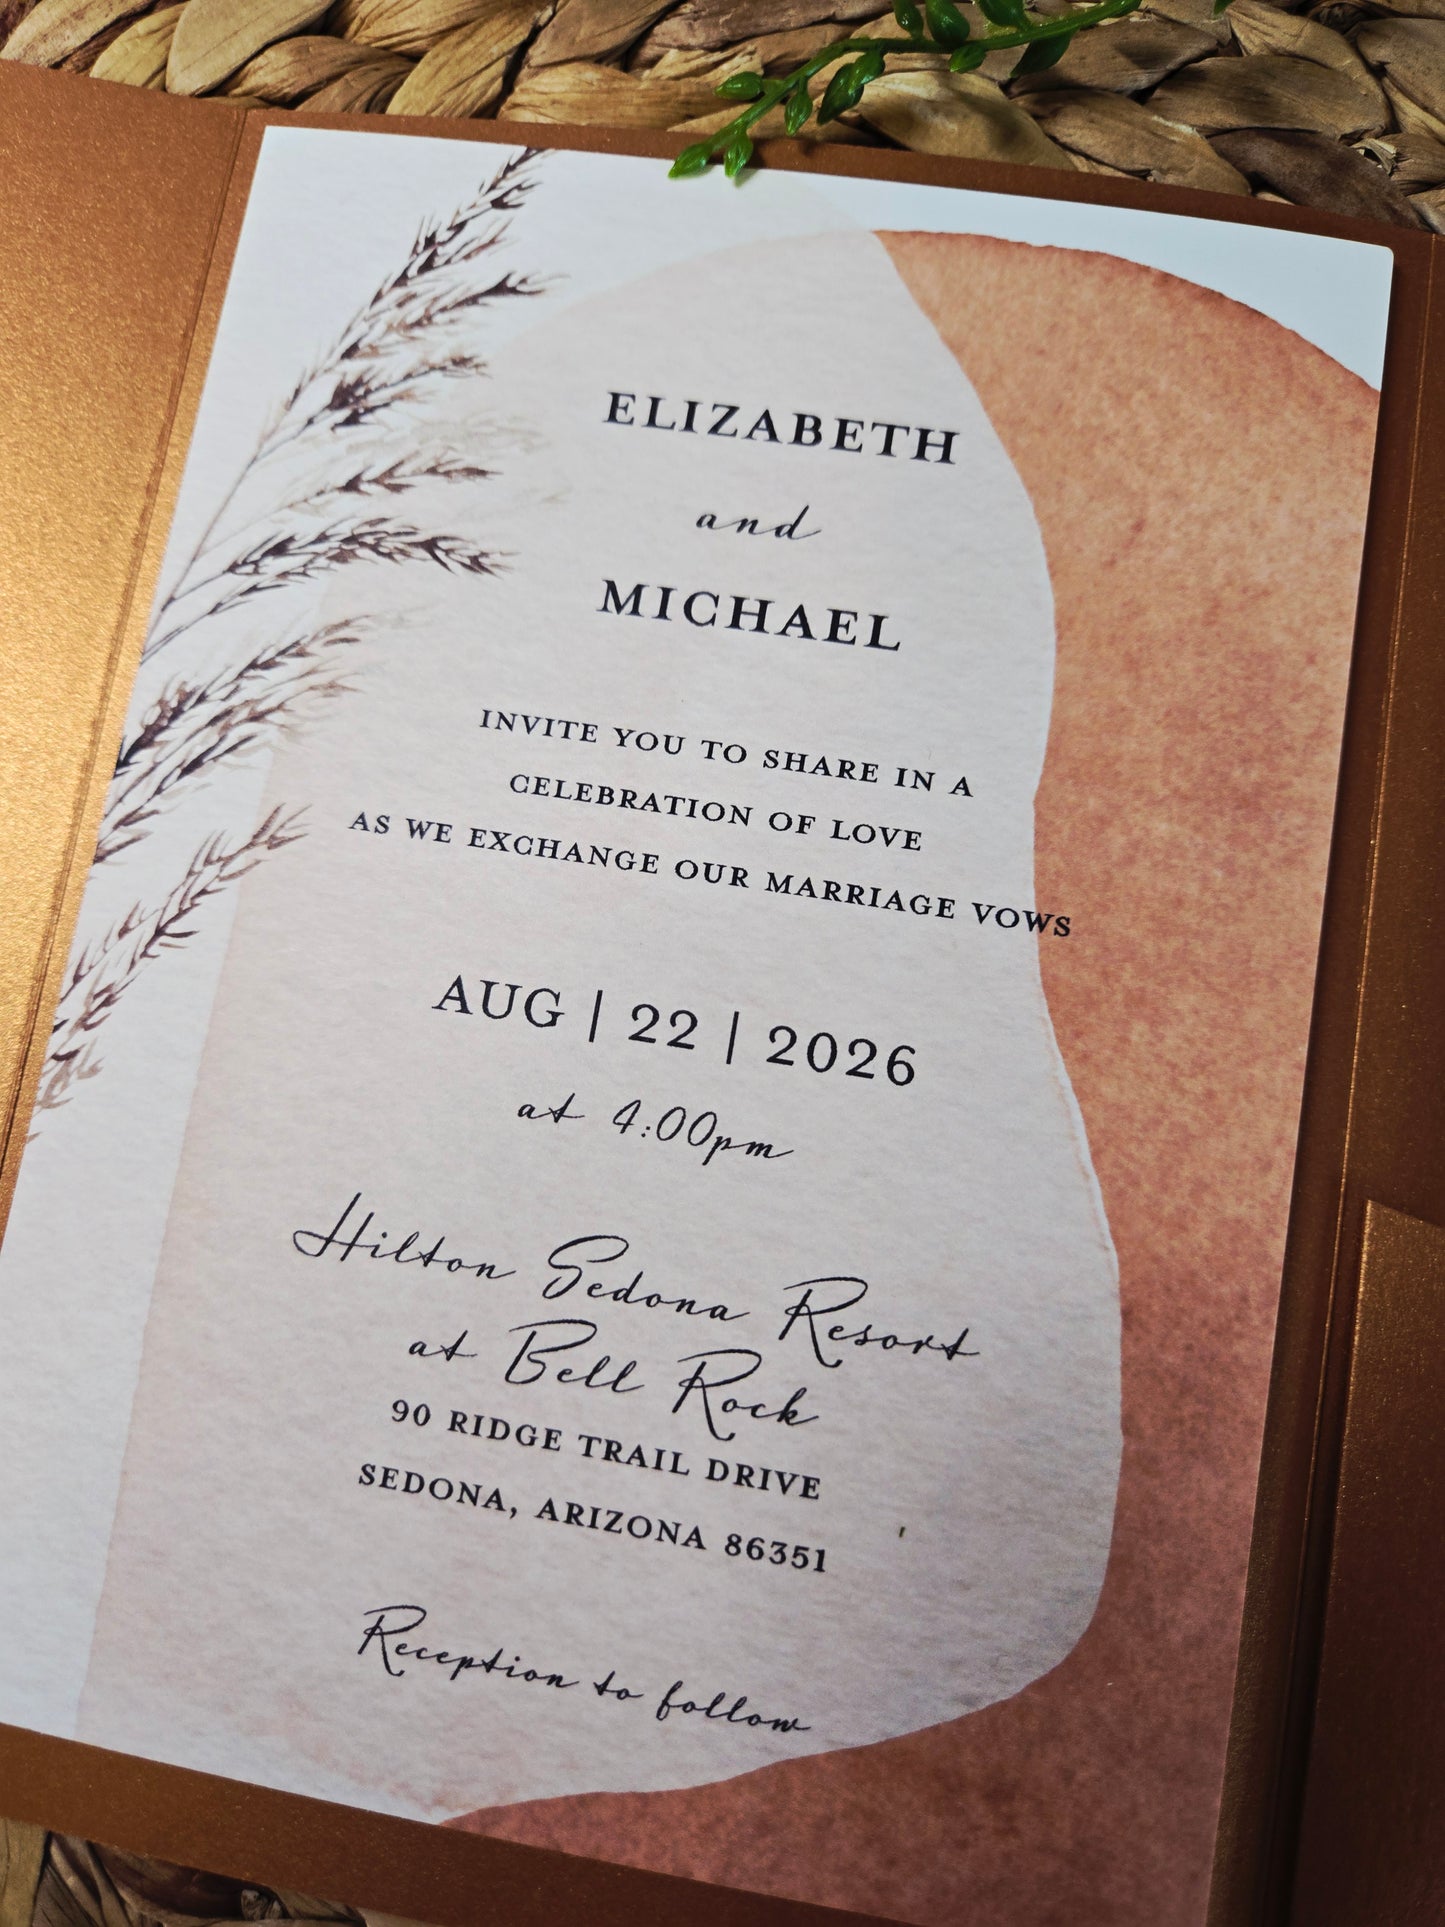 ELIZABETH
and
MICHAEL
INVITE YOU TO SHARE IN A
CELEBRATION OF LOVE
AS WE EXCHANGE OUR MARRIAGE VOWS
AUG | 22 | 2026
at 4:00pm
Hilton Sedona Resort
at Bell Rock
90 RIDGE TRAIL DRIVE
SEDONA, ARIZONA 86351
Reception to follow